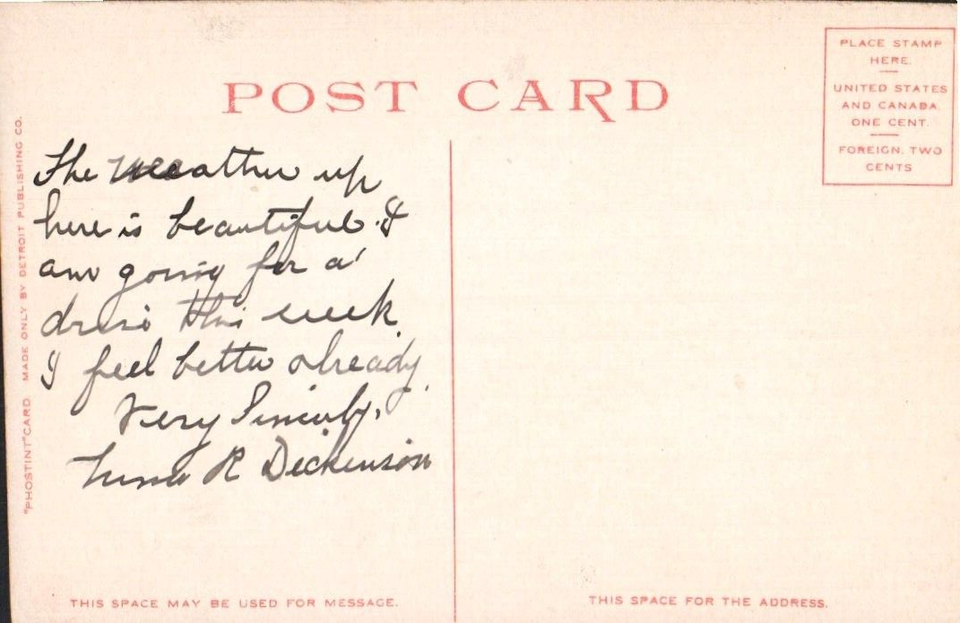 POST CARD
PLACE STAMP
HERE.
UNITED STATES
AND CANADA
ONE CENT.
FOREIGN, TWO
CENTS
"PHOSTINT" CARD MADE ONLY BY DETROIT PUBLISHING CO.
The weather up
here is beautiful. I
am going for a
drive this week.
I feel better already.
Very Sincerely,
R Dickenson
THIS SPACE MAY BE USED FOR MESSAGE.
THIS SPACE FOR THE ADDRESS.